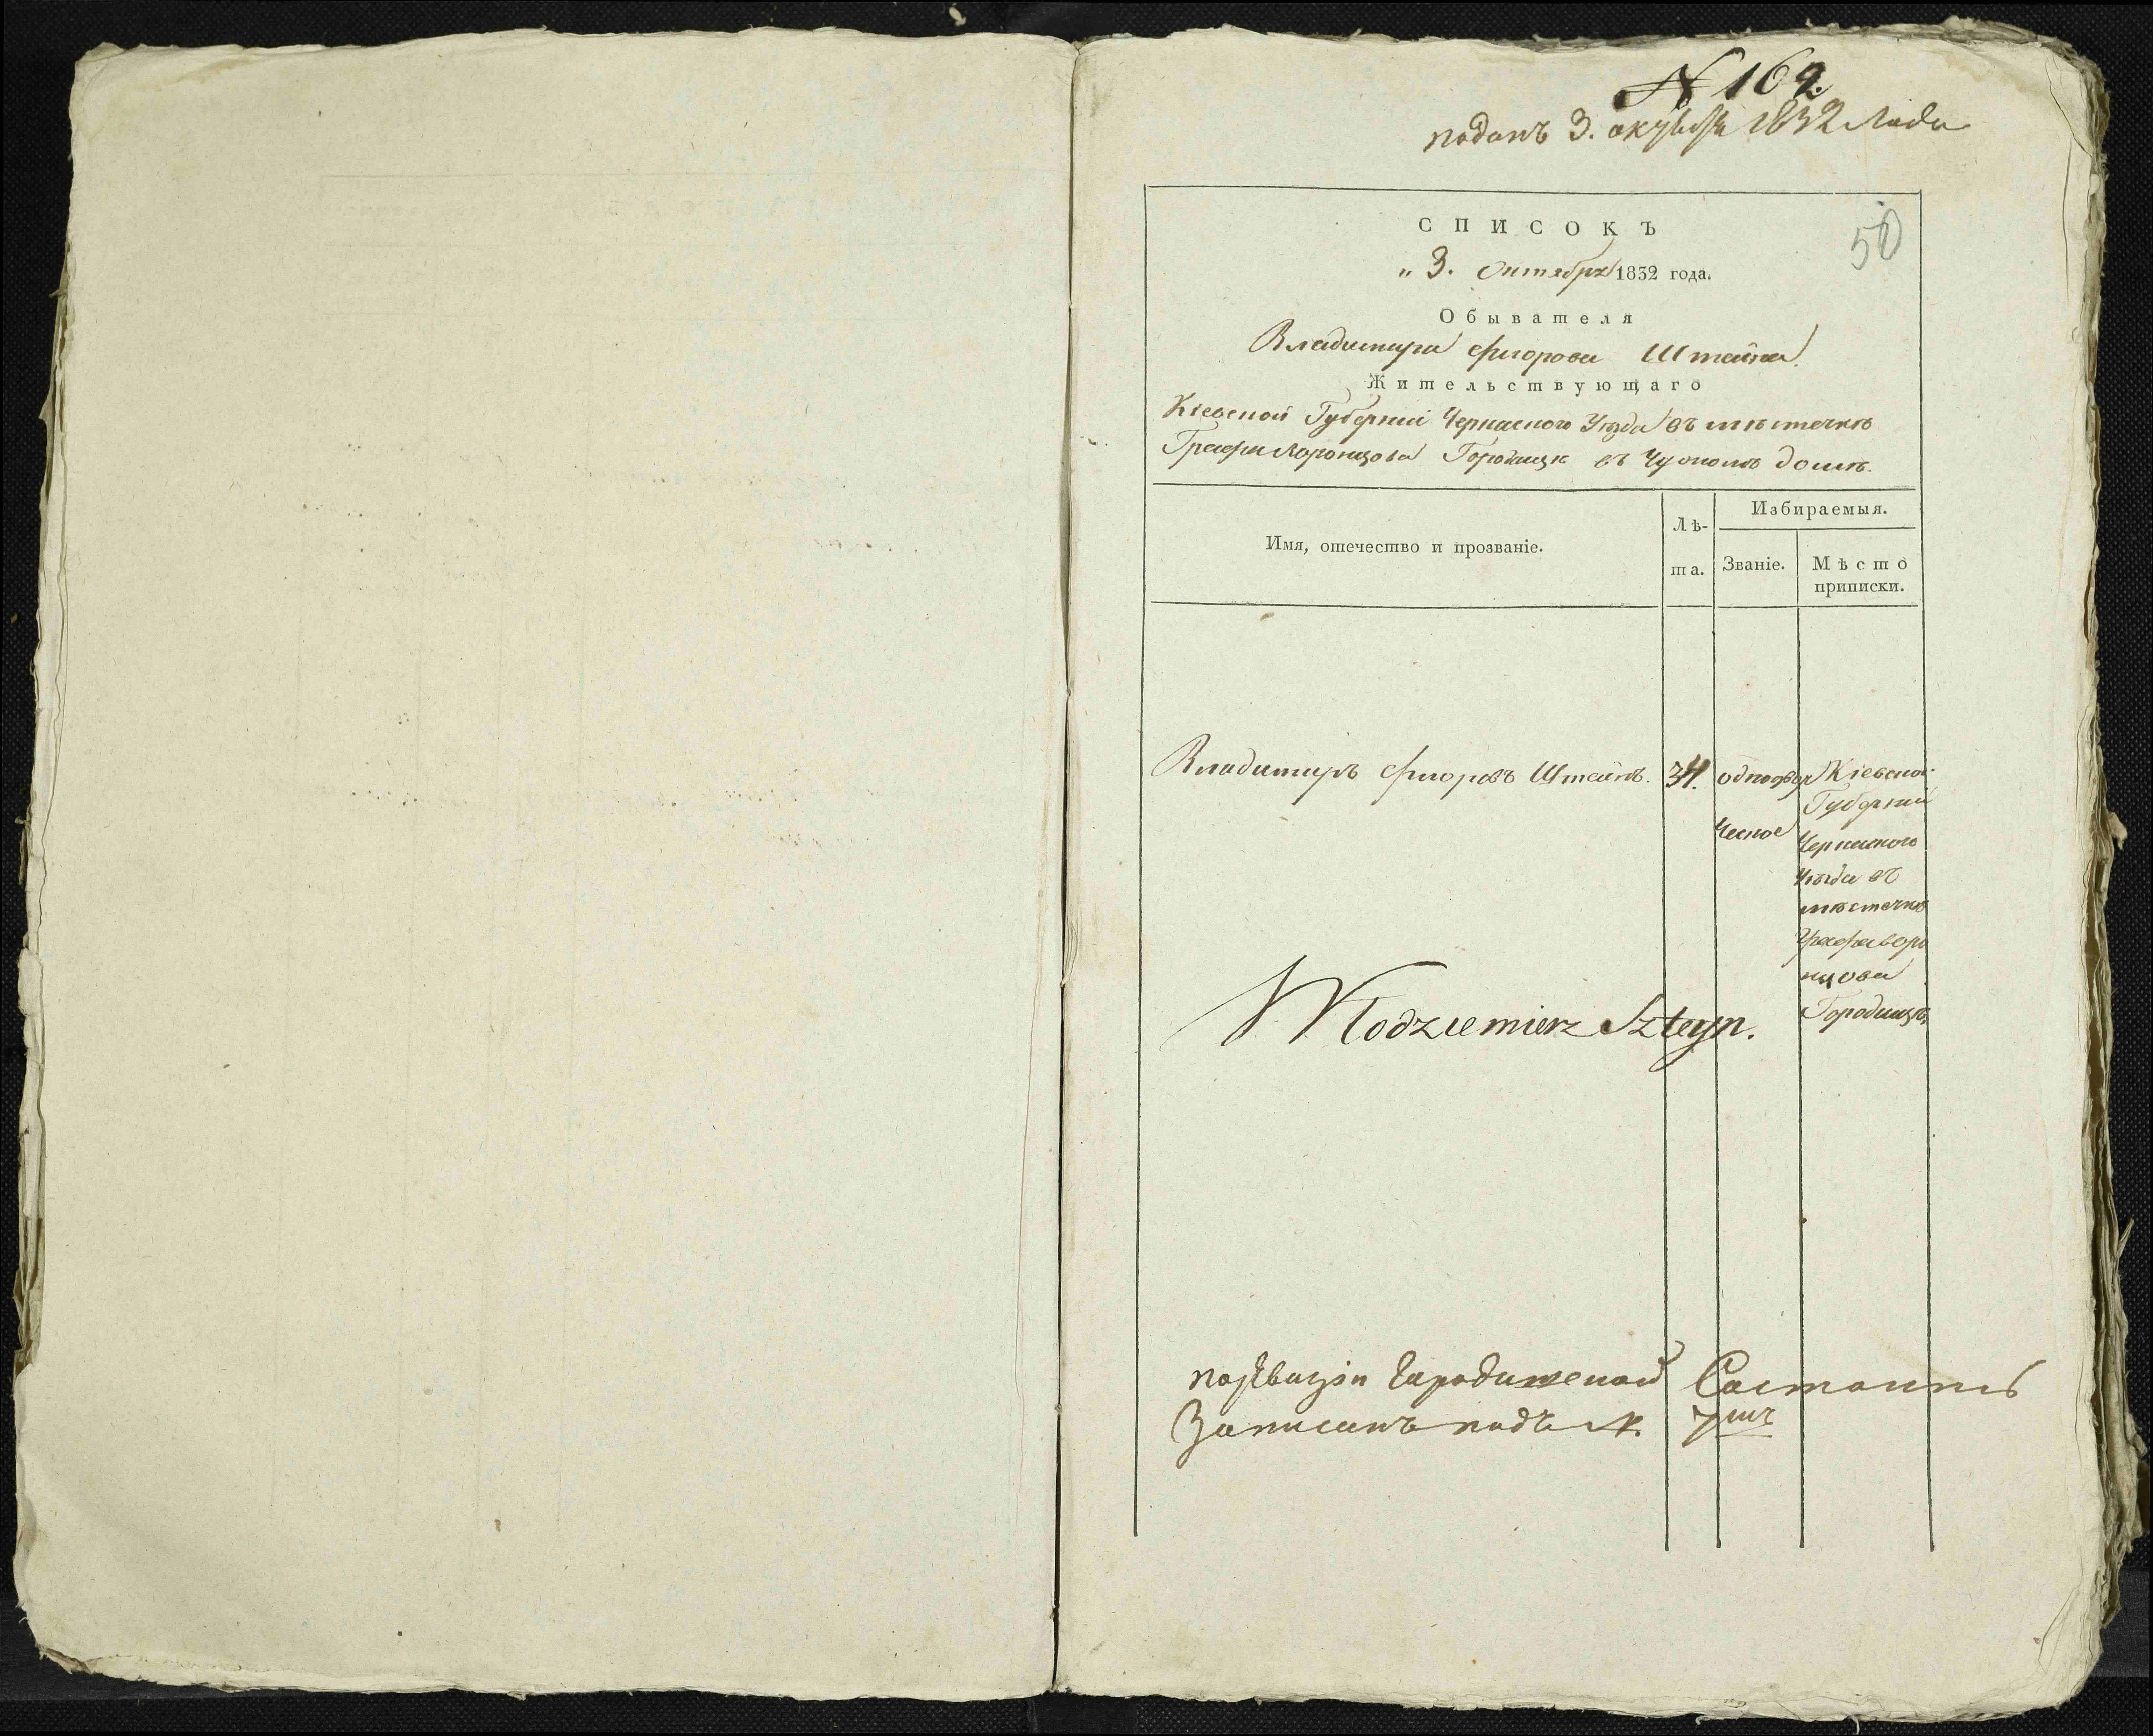 № 162.
поданъ 3. октября 1832 года
50
СПИСОКЪ
„ 3. Октября 1832 года.
Обывателя
Владимира Флорова Штейна.
Жительствующаго
Кіевской Губерніи Черкаского Уѣзда въ мѣстечкѣ
Графа Воронцова Городищѣ въ Чужомъ домѣ.
Имя, отечество и прозваніе.
Лѣ-
та.
Избираемыя.
Званіе.
Мѣсто
приписки.
Владимиръ Флоровъ Штейнъ. 34. однодвор Кіевской
Губерніи
ческое
Черкаского
Уѣзда въ
мѣстечкѣ
Графа Воро
нцова
Городищѣ
Włodziemierz Szteyn.
по Ревизіи Городищской Состоитъ
Записанъ подъ №. 7мъ